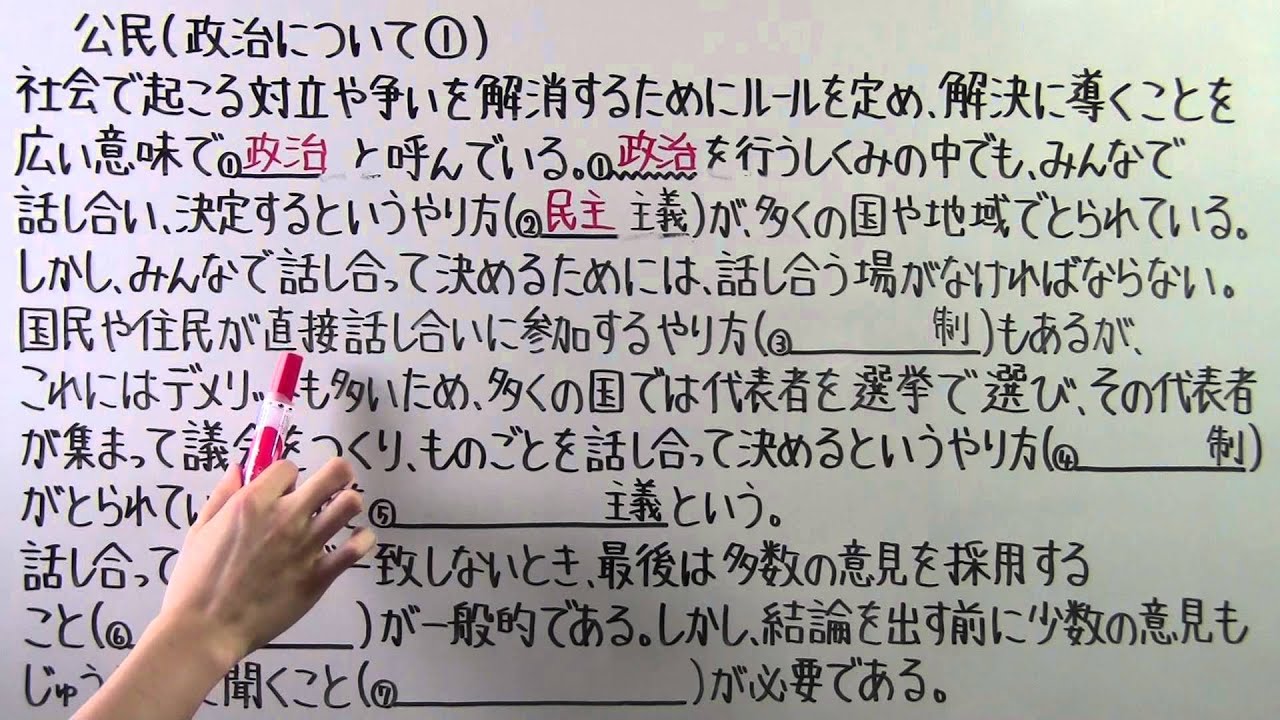 公民(政治について①)
社会で起こる対立や争いを解消するためにルールを定め、解決に導くことを
広い意味で①政治 と呼んでいる。①政治を行うしくみの中でも、みんなで
話し合い、決定するというやり方(②民主 主義)が、多くの国や地域でとられている。
しかし、みんなで話し合って決めるためには、話し合う場がなければならない。
国民や住民が直接話し合いに参加するやり方(③ 制)もあるが、
これにはデメリッ も多いため、多くの国では代表者を選挙で選び、その代表者
が集まって議会をつくり、ものごとを話し合って決めるというやり方(④ 制)
がとられてい ⑤ 主義という。
話し合って 一致しないとき、最後は多数の意見を採用する
こと(⑥ )が一般的である。しかし、結論を出す前に少数の意見も
じゅう 聞くこと(⑦ )が必要である。